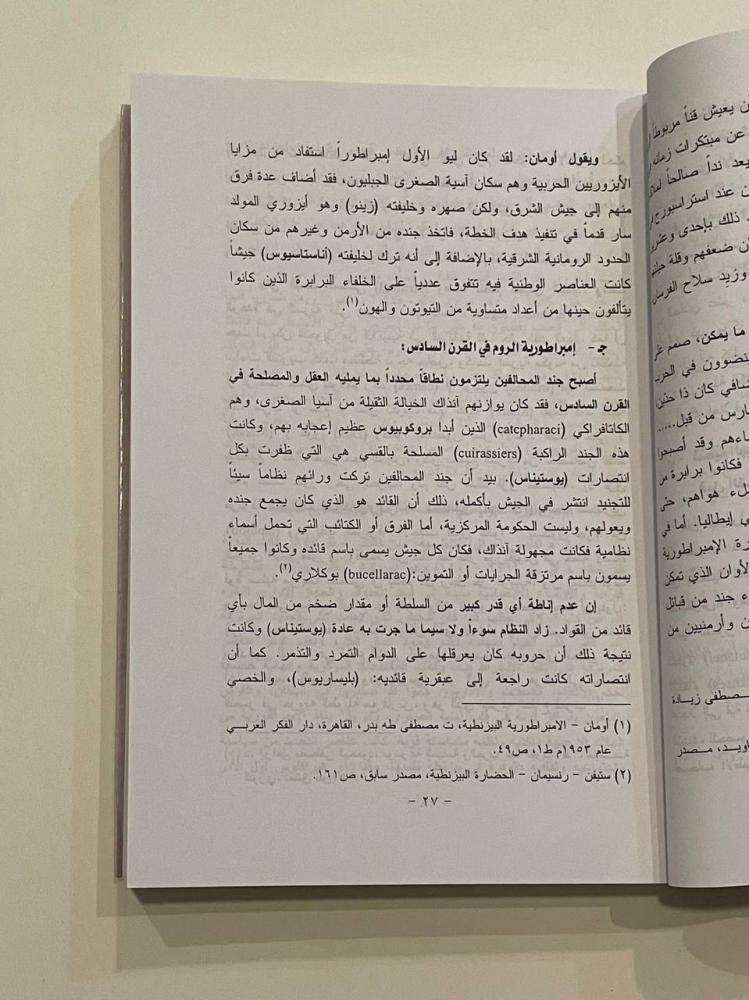 ويقول أومان: لقد كان ليو الأول إمبراطوراً استفاد من مزايا
الأيزوريين الحربية وهم سكان آسية الصغرى الجبليون، فقد أضاف عدة فرق
منهم إلى جيش الشرق، ولكن صهره وخليفته (زينو) وهو أيزوري المولد
سار قدماً في تنفيذ هدف الخطة، فاتخذ جنده من الأرمن وغيرهم من سكان
الحدود الرومانية الشرقية، بالإضافة إلى أنه ترك لخليفته (أناستاسيوس) جيشاً
كانت العناصر الوطنية فيه تتفوق عددياً على الخلفاء البرابرة الذين كانوا
يتألفون حينها من أعداد متساوية من التيوتون والهون(١).
جـ - إمبراطورية الروم في القرن السادس:
أصبح جند المحالفين يلتزمون نطاقاً محدداً بما يمليه العقل والمصلحة في
القرن السادس، فقد كان يوازنهم آنذاك الخيالة الثقيلة من آسيا الصغرى، وهم
الكاتافراكي (catcpharaci) الذين أبدا بروكوبيوس عظيم إعجابه بهم، وكانت
هذه الجند الراكبة (cuirassiers) المسلحة بالقسي هي التي ظفرت بكل
انتصارات (يوستيناس). بيد أن جند المحالفين تركت ورائهم نظاماً سيئاً
للتجنيد انتشر في الجيش بأكمله، ذلك أن القائد هو الذي كان يجمع جنده
ويعولهم، وليست الحكومة المركزية، أما الفرق أو الكتائب التي تحمل أسماء
نظامية فكانت مجهولة آنذاك، فكان كل جيش يسمى باسم قائده وكانوا جميعاً
يسمون باسم مرتزقة الجرايات أو التموين:(bucellarac) بوكلاري(٢).
إن عدم إناطة أي قدر كبير من السلطة أو مقدار ضخم من المال بأي
قائد من القواد. زاد النظام سوءاً ولا سيما ما جرت به عادة (يوستيناس) وكانت
نتيجة ذلك أن حروبه كان يعرقلها على الدوام التمرد والتذمر. كما أن
انتصاراته كانت راجعة إلى عبقرية قائديه: (بليساريوس)، والخصي
(١) أومان - الامبراطورية البيزنطية، ت مصطفى طه بدر، القاهرة، دار الفكر العربي
عام ١٩٥٣م ط١، ص٤٩.
(٢) ستيفن - رنسيمان - الحضارة البيزنطية، مصدر سابق، ص١٦١.
- ٢٧ -
ن يعيش قناً مربوطاً
عن مبتكرات زمانه
يعد نداً صالحاً
ت عند استراسبورج
ذلك بإحدى
ن ضعفهم وقلة
وزيد سلاح الفرسان
ما يمكن، صمم
نضوون في
ضافي كان ذا
ارس من قبل.....
اءهم وقد أصبحوا
فكانوا برابرة
لء هواهم، حتى
ي إيطاليا. أما في
رة الإمبراطورية
لأوان الذي تمكن
ء جند من قبائل
ن وأرمنيين من
صطفى زيادة
اويد، مصدر